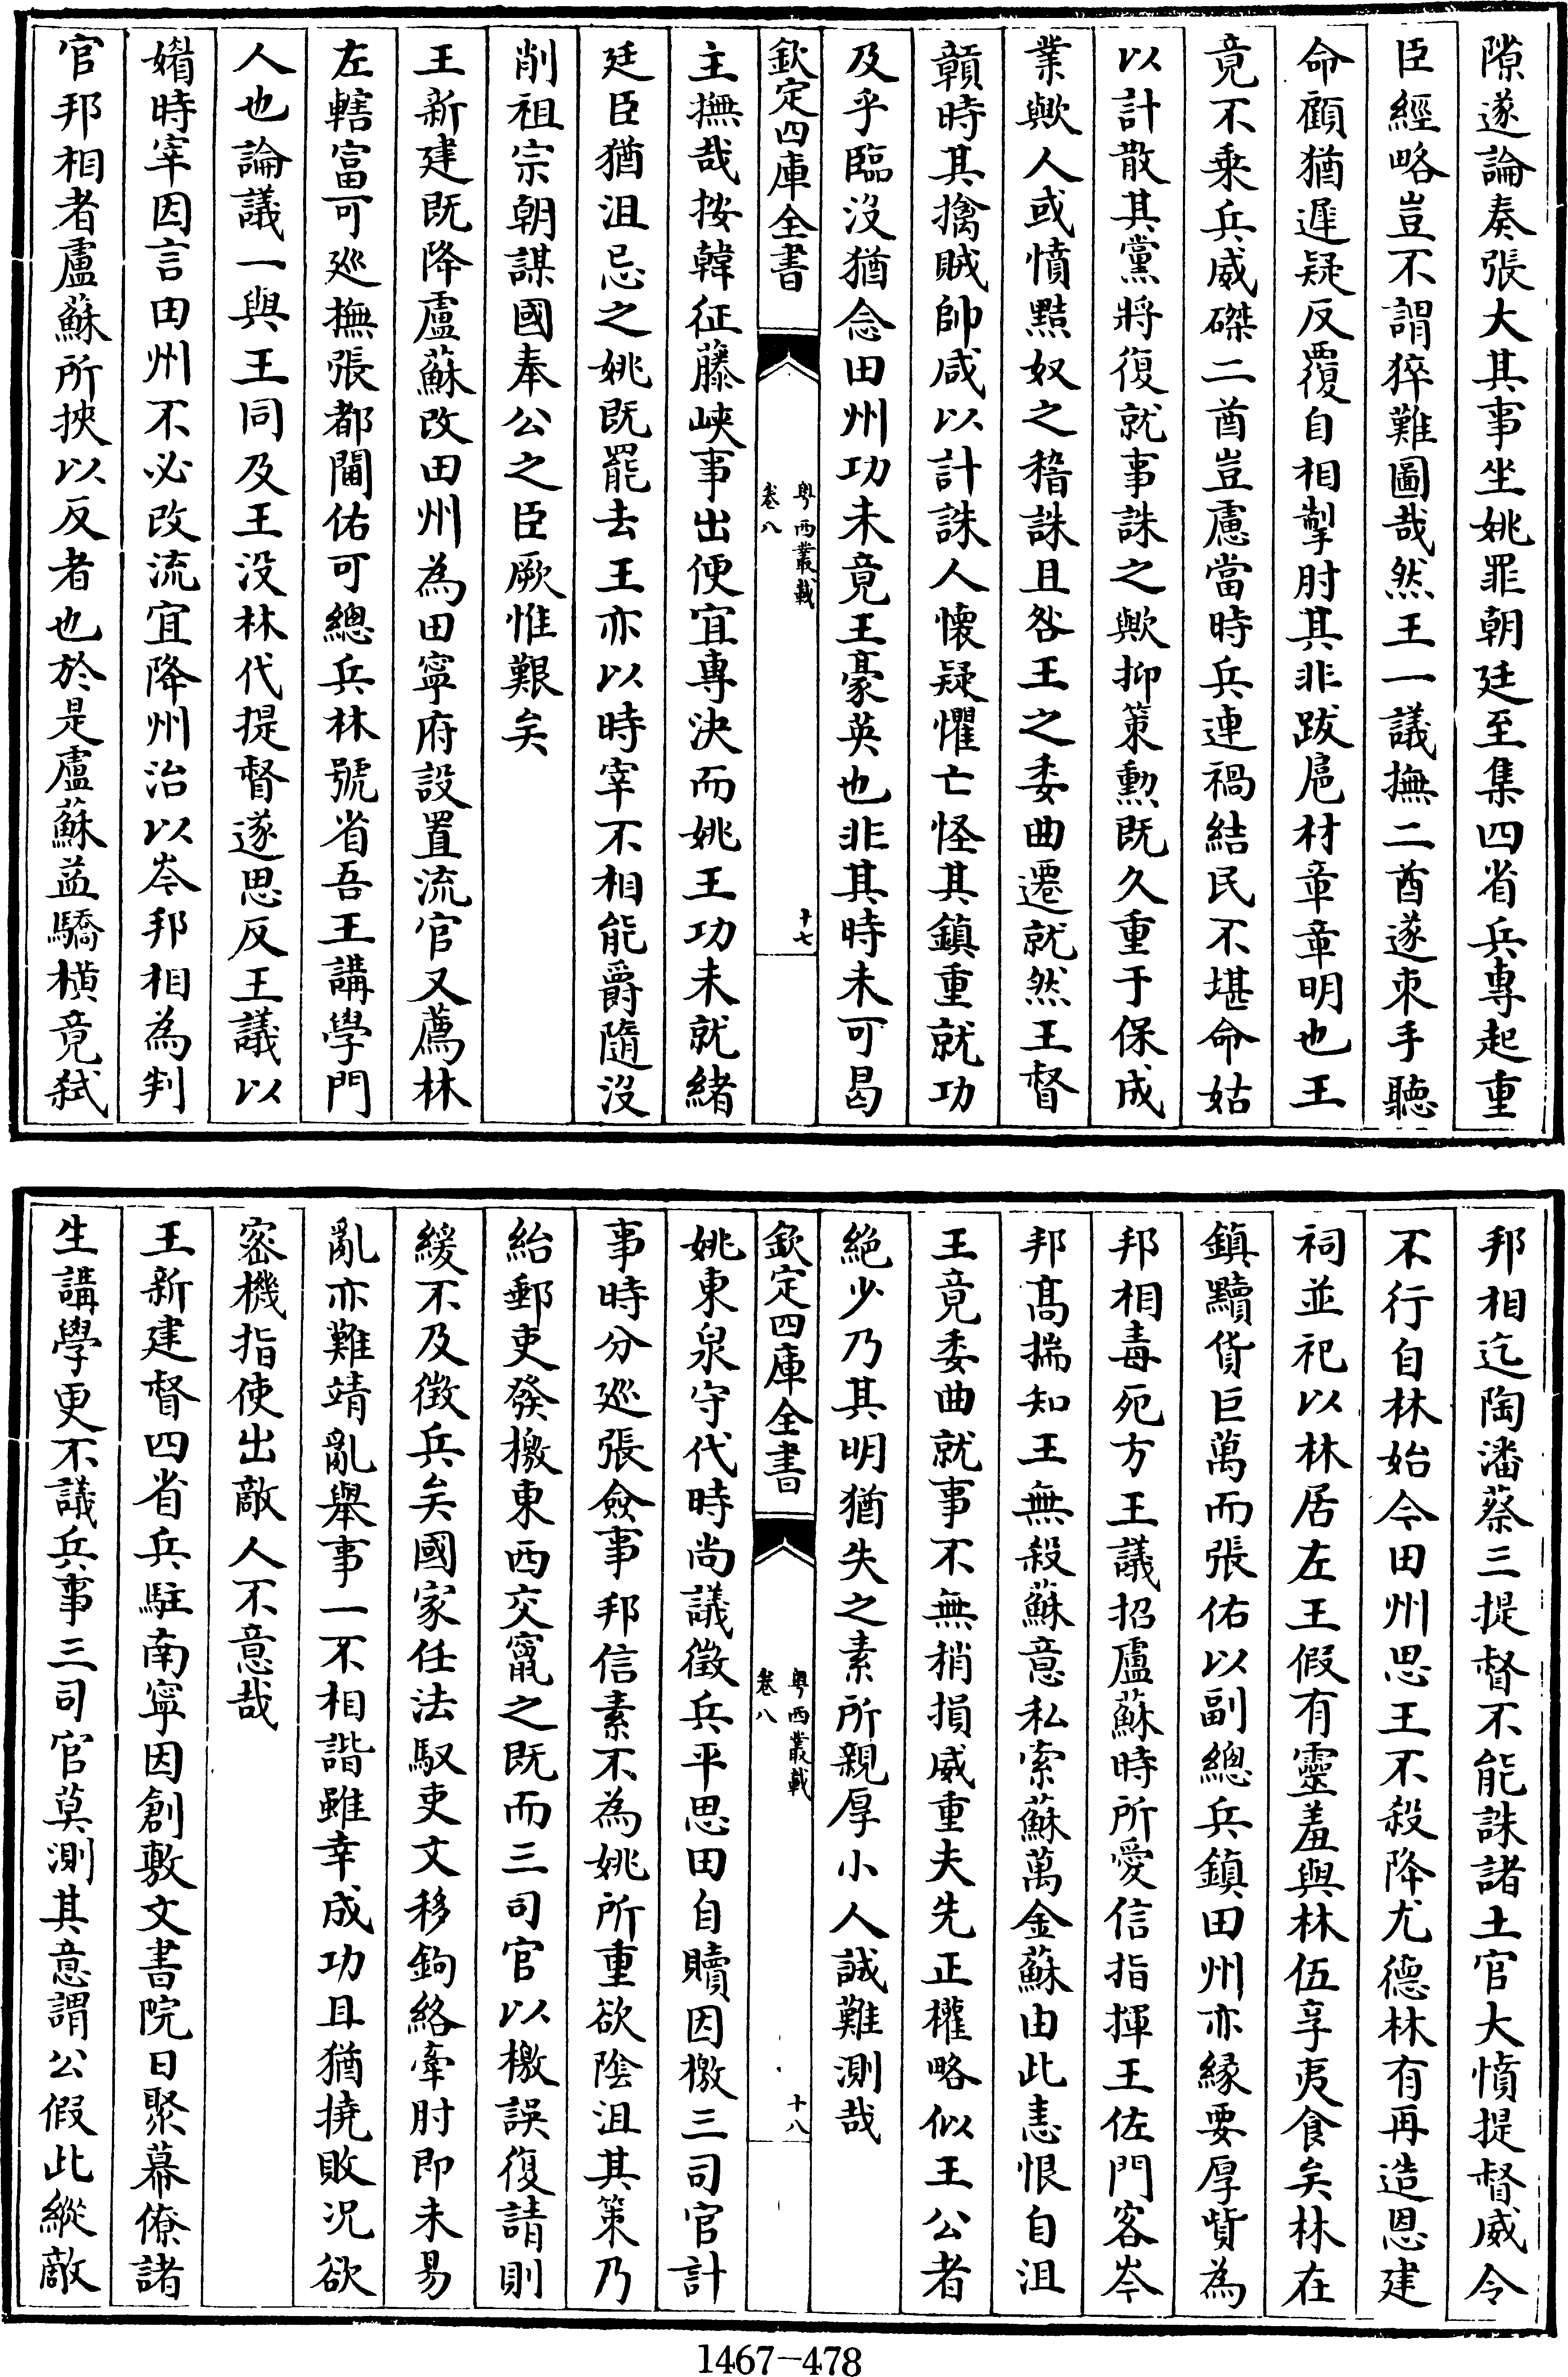 隙遂論奏張大其事坐姚罪朝廷至集四省兵專起重
臣經略豈不謂猝難圖哉然王一議撫二酋遂束手聽
命顧猶遲疑反覆自相掣肘其非跋扈材章章明也王
竟不乘兵威磔二酋豈慮當時兵連禍結民不堪命姑
以計散其黨將復就事誅之歟抑策勲既久重于保成
業歟人或憤黠奴之稽誅且咎王之委曲遷就然王督
贑時其擒賊帥咸以計誅人懷疑懼亡怪其鎮重就功
及乎臨沒猶念田州功未竟王豪英也非其時未可曷
欽定四庫全書
粤西叢載
卷八
十七
主撫哉按韓征藤峽事出便宜專決而姚王功未就緒
廷臣猶沮忌之姚既罷去王亦以時宰不相能爵隨沒
削祖宗朝謀國奉公之臣厥惟艱矣
王新建既降盧蘇改田州為田寧府設置流官又薦林
左轄富可廵撫張都閫佑可總兵林號省吾王講學門
人也論議一與王同及王沒林代提督遂思反王議以
媚時宰因言田州不必改流宜降州治以岑邦相為判
官邦相者盧蘇所挾以反者也於是盧蘇益驕横竟弑
邦相迄陶潘蔡三提督不能誅諸土官大憤提督威令
不行自林始今田州思王不殺降尤德林有再造恩建
祠並祀以林居左王假有靈羞與林伍享夷食矣林在
鎮黷貨巨萬而張佑以副總兵鎮田州亦緣要厚貲為
邦相毒死方王議招盧蘇時所愛信指揮王佐門客岑
邦髙揣知王無殺蘇意私索蘇萬金蘇由此恚恨自沮
王竟委曲就事不無稍損威重夫先正權略似王公者
絶少乃其明猶失之素所親厚小人誠難測哉
欽定四庫全書
粤西叢載
卷八
十八
姚東泉守代時尚議徵兵平思田自贖因檄三司官計
事時分廵張僉事邦信素不為姚所重欲陰沮其策乃
紿郵吏發檄東西交竄之既而三司官以檄誤復請則
緩不及徵兵矣國家任法馭吏文移鉤絡牽肘即未易
亂亦難靖亂舉事一不相諧雖幸成功且猶撓敗况欲
密機指使出敵人不意哉
王新建督四省兵駐南寧因創敷文書院日聚幕僚諸
生講學更不議兵事三司官莫測其意謂公假此縱敵
1467—478